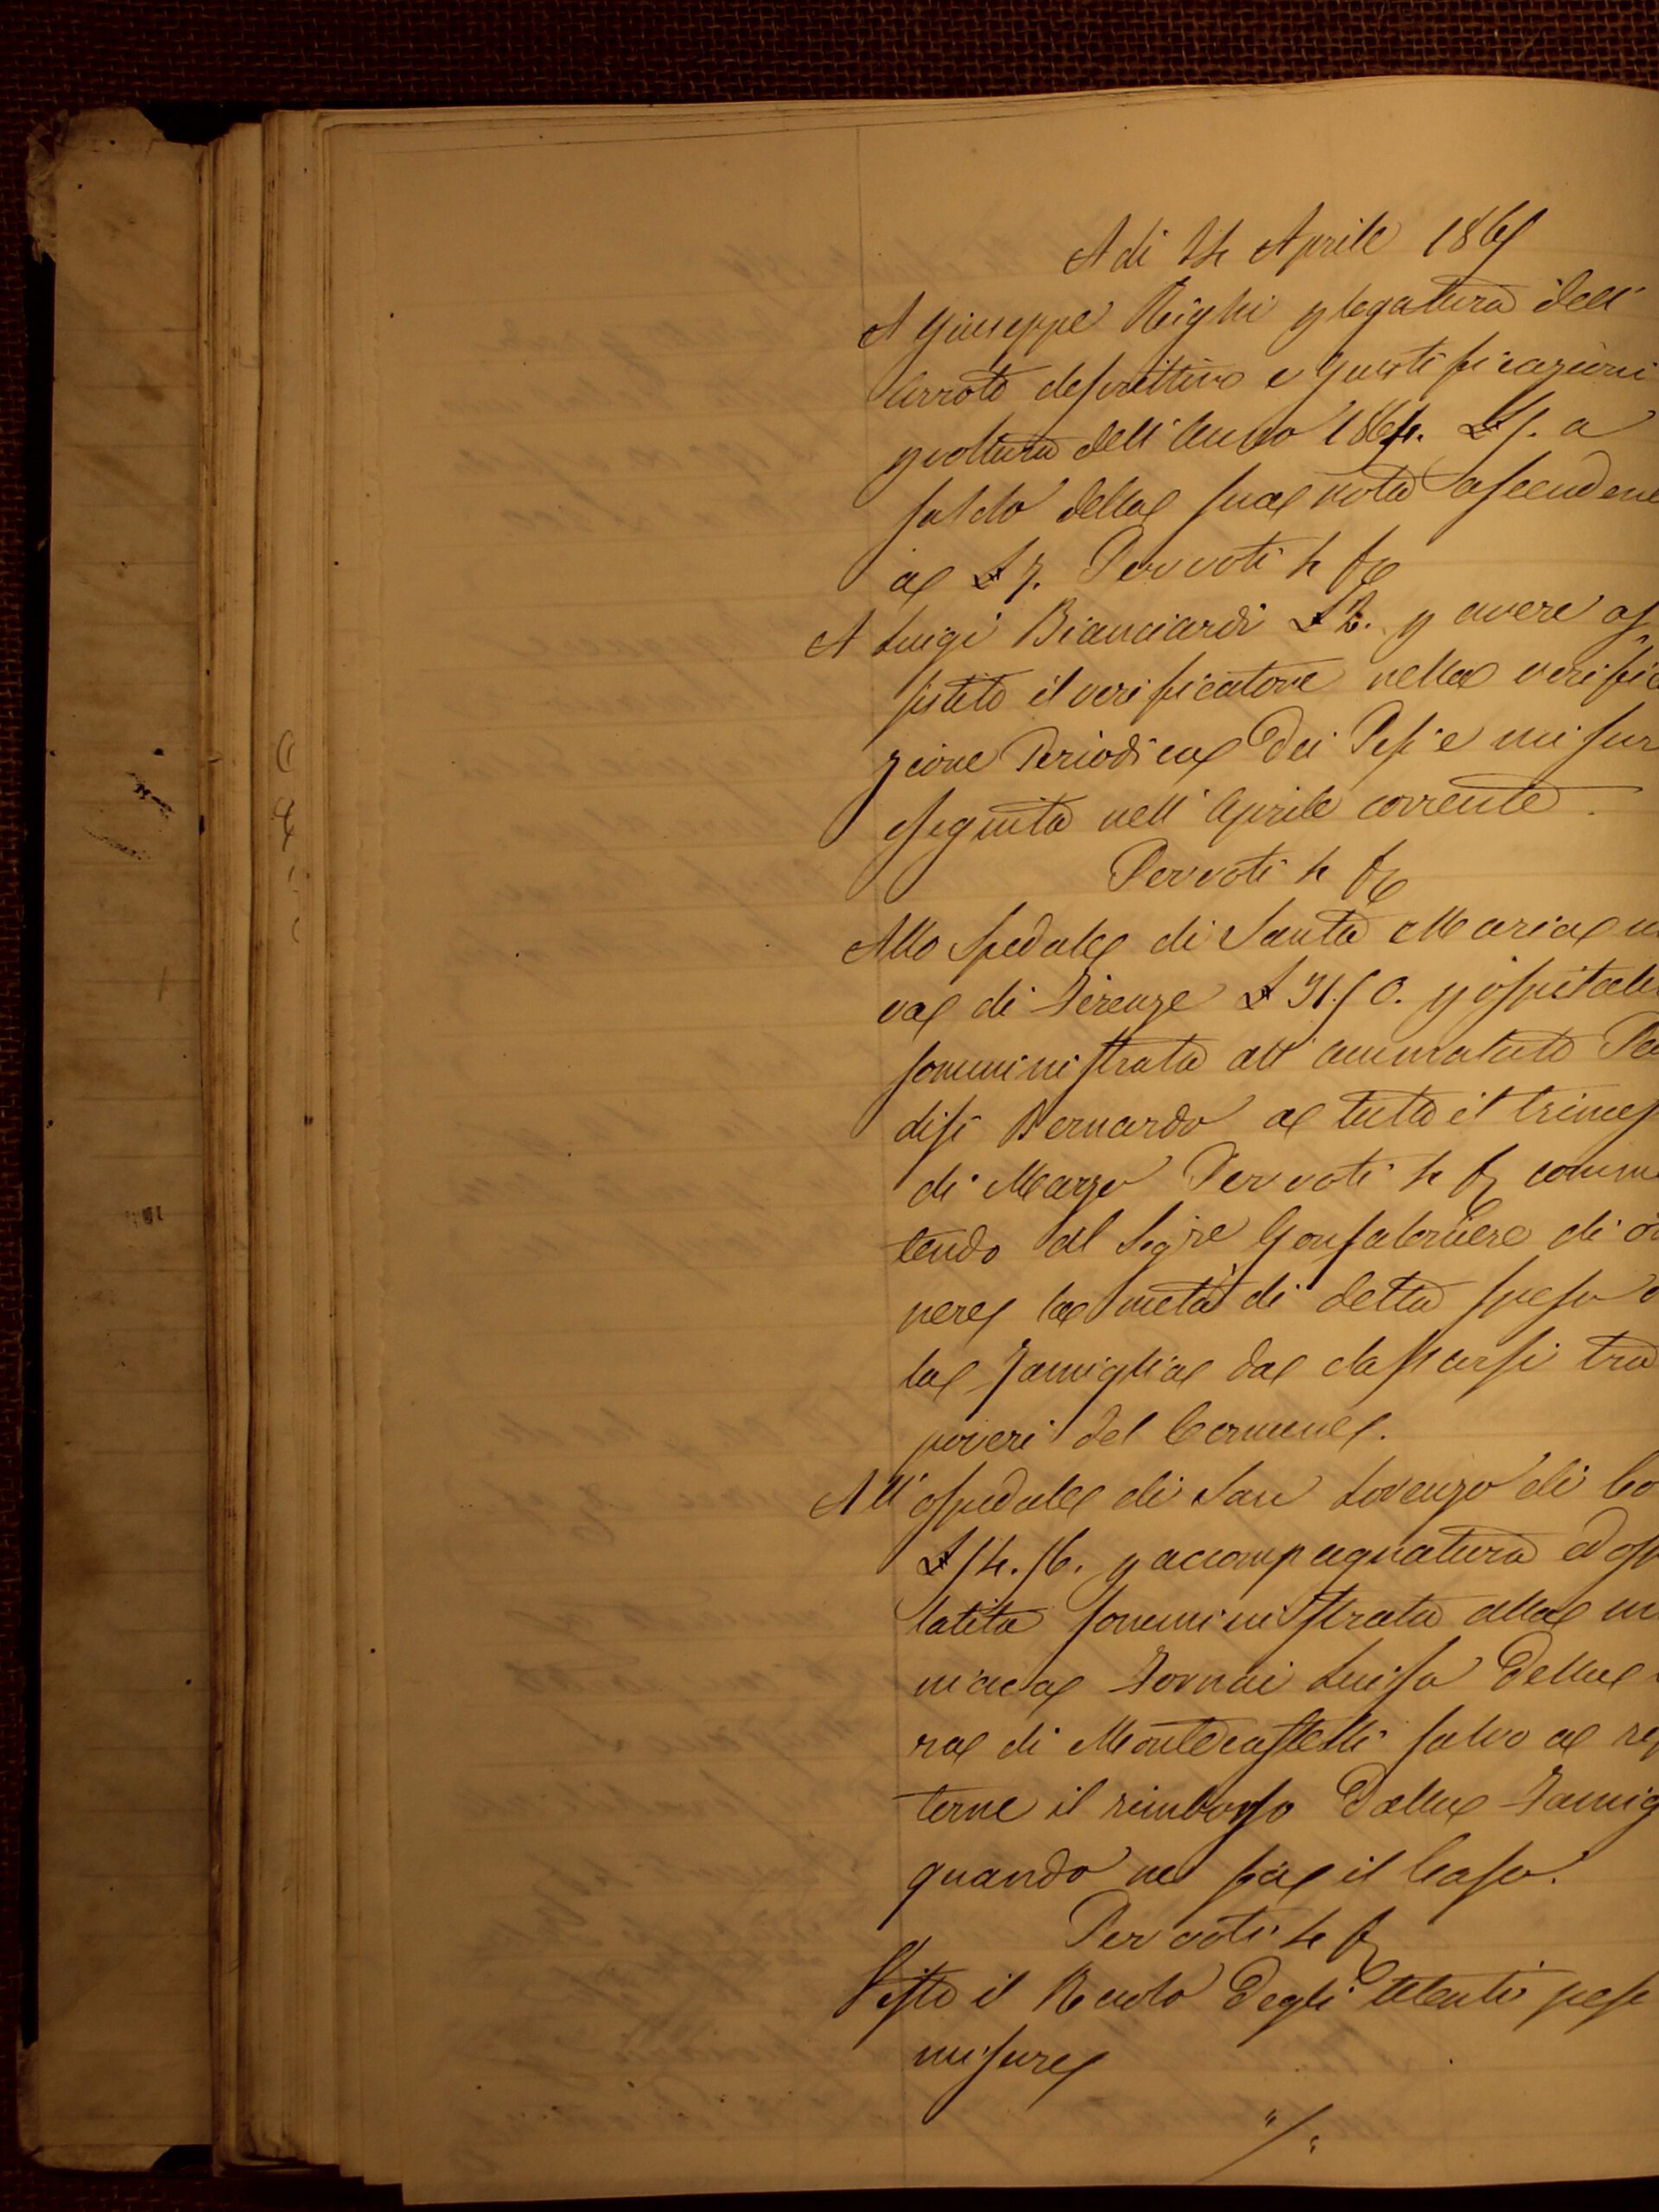 Adi 24 Aprile 1865
A Giuseppe Righi p legatura dell'
arroto descrittivo e giustificazioni
p voltura dell'Anno 1864. £ 5. a
saldo della sua nota ascendene
a £ 7. Per voti 4 f
A Luigi Bianciardi £ 2. p avere as
sistito il verificatore nella verifica
zione Periodica dei Pesi e misur
eseguita nell'Aprile corrente.
Per voti 4 f
Allo Spedale di Santa Maria nu
va di Firenze £ 31.50. p ospitali
somministrata all'ammalato Pa
disi Bernardo a tutto il trimes
di Marzo Per voti 4 f comme
tendo al Sigre Gonfaloniere di o
nere la metà di detta spesa
la Famiglia da classarsi tra
poveri del Comune.
All'ospedale di San Lorenzo di Co
£ 54.56. p accompagnatura ed osp
talità somministrata alla m
niaca Fornai Luisa della
ra di Montecastelli salvo a rep
terne il rimborso dalla Famig
quando ne sia il Caso.
Per voti 4 f
Visto il Ruolo degli utenti pesi
misure
"/"